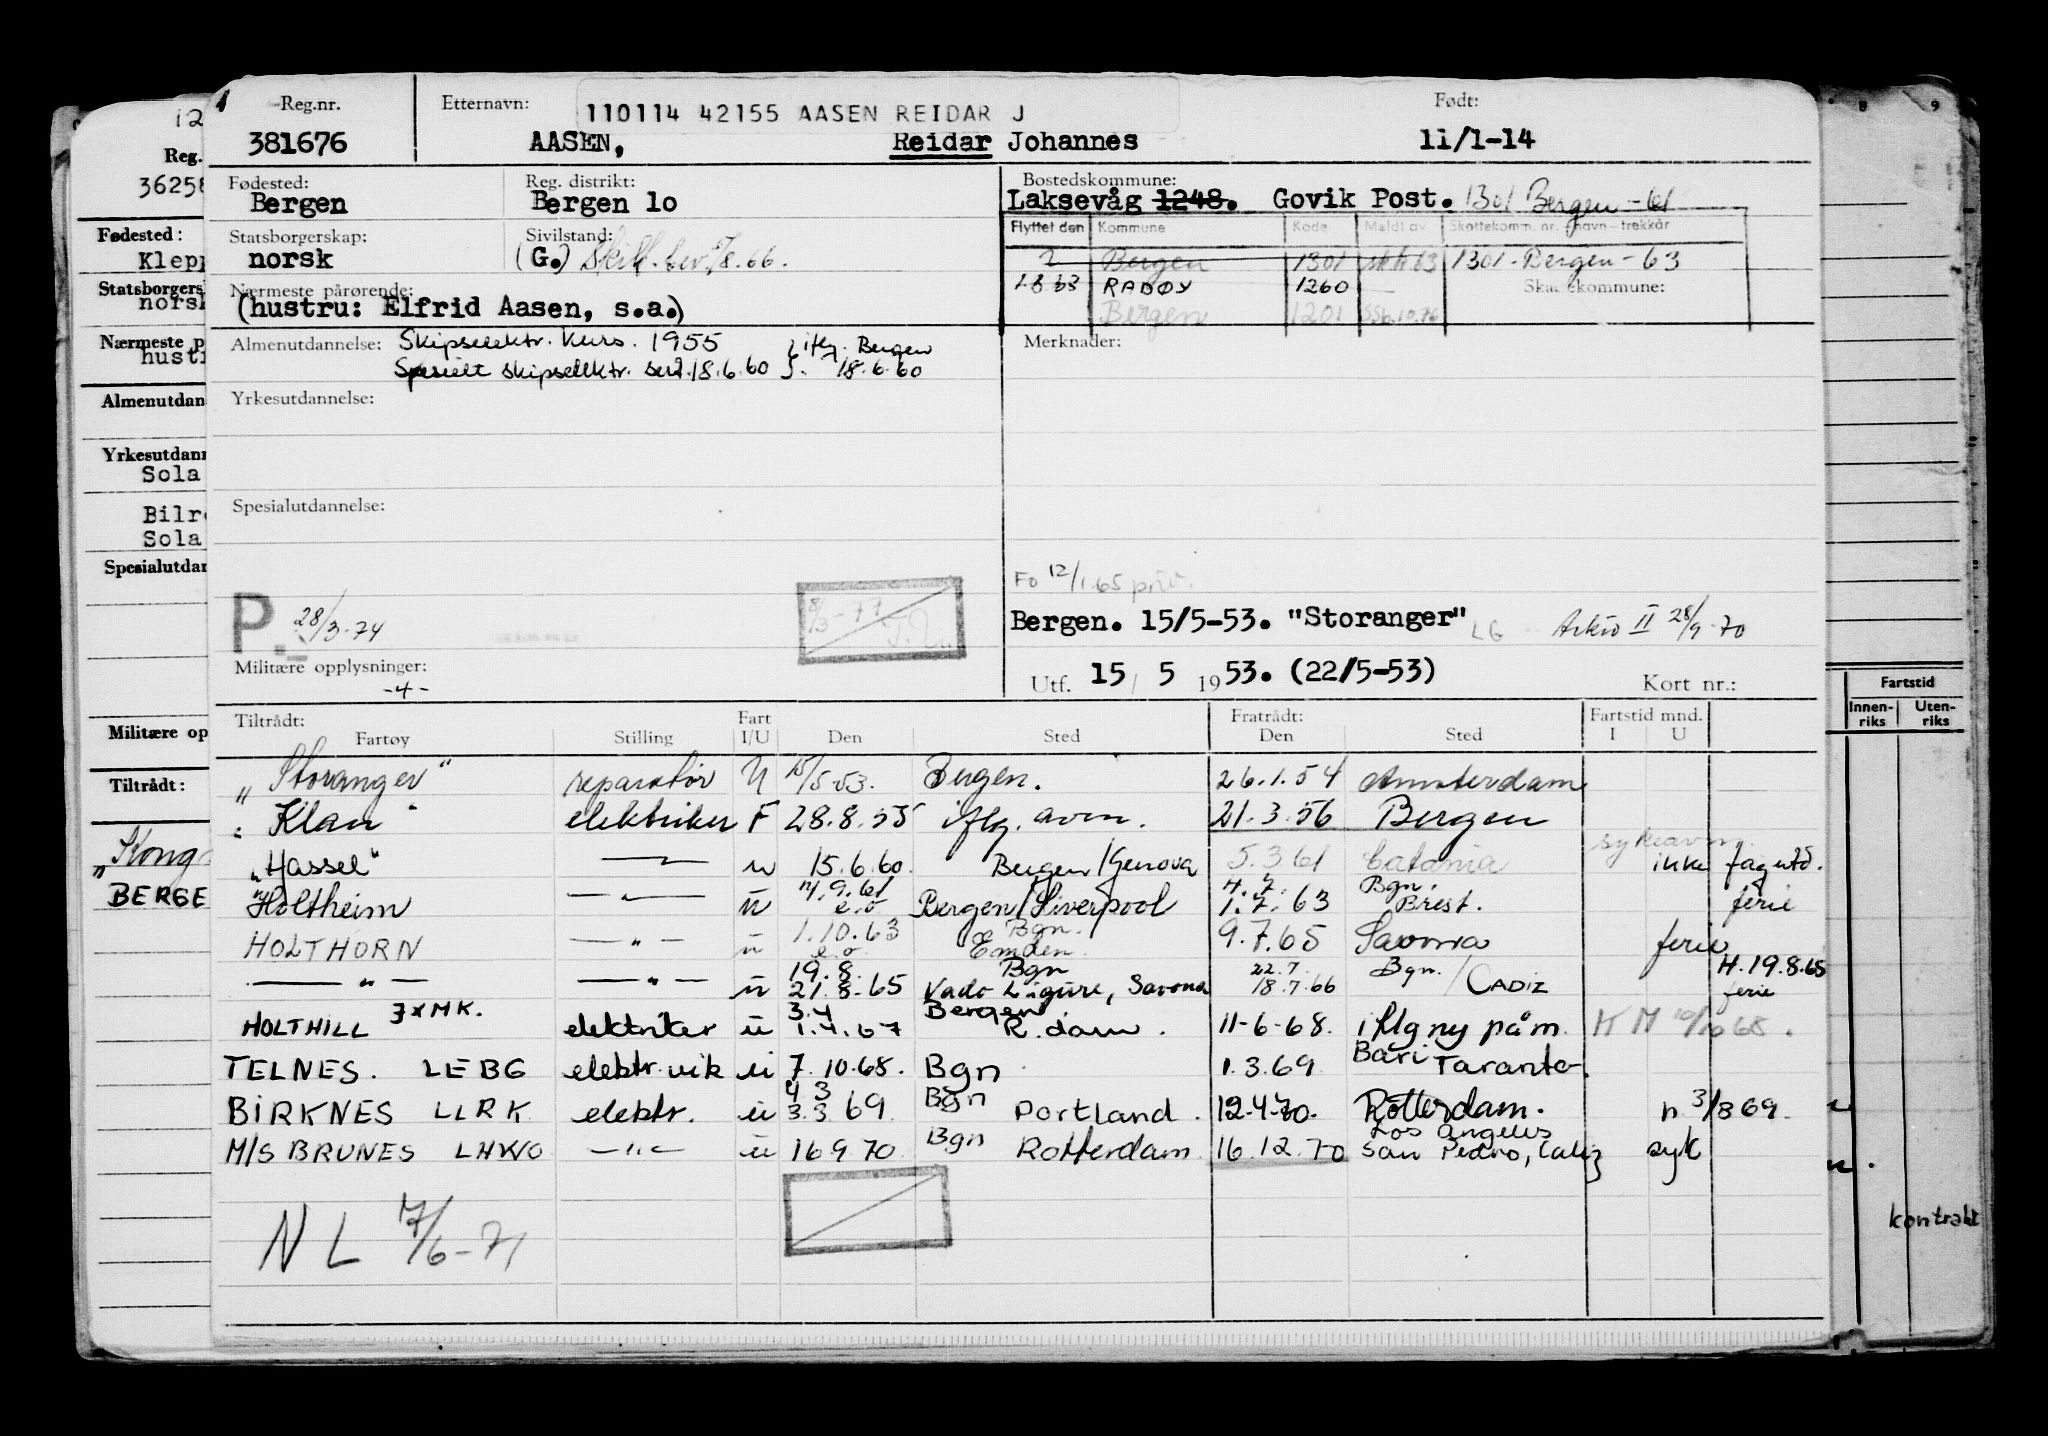 Reg.nr. Etternavn: 110114 42155 AASEN REIDAR J Født:
381676 AASEN, Reidar Johannes 11/1-14
Fødested: Reg. distrikt: Bostedskommune:
Bergen Bergen lo Laksevåg 1248. Govik Post. 1301 Bergen - 61
Statsborgerskap: Sivilstand: Flyttet den Kommune Kode Meldt av Skattekomm. nr. navn - trekkår
norsk (G.) Skilt. bev. /8.66. 2 Bergen 1301 63 1301 - Bergen - 63
Nærmeste pårørende: 1-8-63 RADØY 1260 — Skattekommune:
(hustru: Elfrid Aasen, s.a.) Bergen 1201 10.76
Almenutdannelse: Skipselektr. kurs. 1955 iflg. Bergen Merknader:
Spesielt skipselektr. 18.6.60 18.6.60
Yrkesutdannelse:
Spesialutdannelse:
Fo 12/1.65 priv.
P. 28/3-74 8/3-77 Bergen. 15/5-53. "Storanger" LG Arkiv II 28/9-70
Militære opplysninger: Utf. 15/5 1953. (22/5-53) Kort nr.:
-4-
Tiltrådt: Fart Fratrådt: Fartstid mnd.
Fartøy Stilling I/U Den Sted Den Sted I U
"Storanger" reparatør U 15/5-53. Bergen. 26.1.54 Amsterdam
"Klan" elektriker F 28.8.55 iflg. avm. 21.3.56 Bergen
"Hassel" — " — u 15.6.60. Bergen/Genova 5.3.61 Catania sykeavm. ikke fagutd.
"Holtheim — " — u 14.9.61 e.o Bergen/Liverpool 4.7. 1.7.63 Bgn. Brest. ferie
HOLTHORN — " — u 1.10.63 e.o Bgn. Emden 9.7.65 Savona ferie
— " — — " — u 19.8. 21.8.65 Bgn Vado Ligure, Savona 22.7 18.7.66 Bgn./CADIZ H. 19.8.65 ferie
HOLTHILL JXMK. elektriker u 3.4 1.4.67 Bergen R.dam. 11-6-68. iflg ny påm. 10/10 68.
TELNES. LEBG elektr. vik u 7.10.68. Bgn 1.3.69 Bari Taranto.
BIRKNES LLRK elektr. u 4 3 3.3.69. Bgn Portland. 12-4-70. Rotterdam. n 3/3 69.
M/S BRUNES LHWO — " — u 16 9 70 Bgn Rotterdam 16.12.70 Los Angeles San Pedro, Calif syk
NL 17/6-71
12
Reg.
36258
Fødested:
Klepp
Statsborgers
norsk
Nærmeste p
hust
Almenutdan
Yrkesutdann
Sola
Bilr
Sola
Spesialutdan
Militære op
Tiltrådt:
"Kong
BERGE
8 9
Fartstid
Innenriks Utenriks
kontrakt